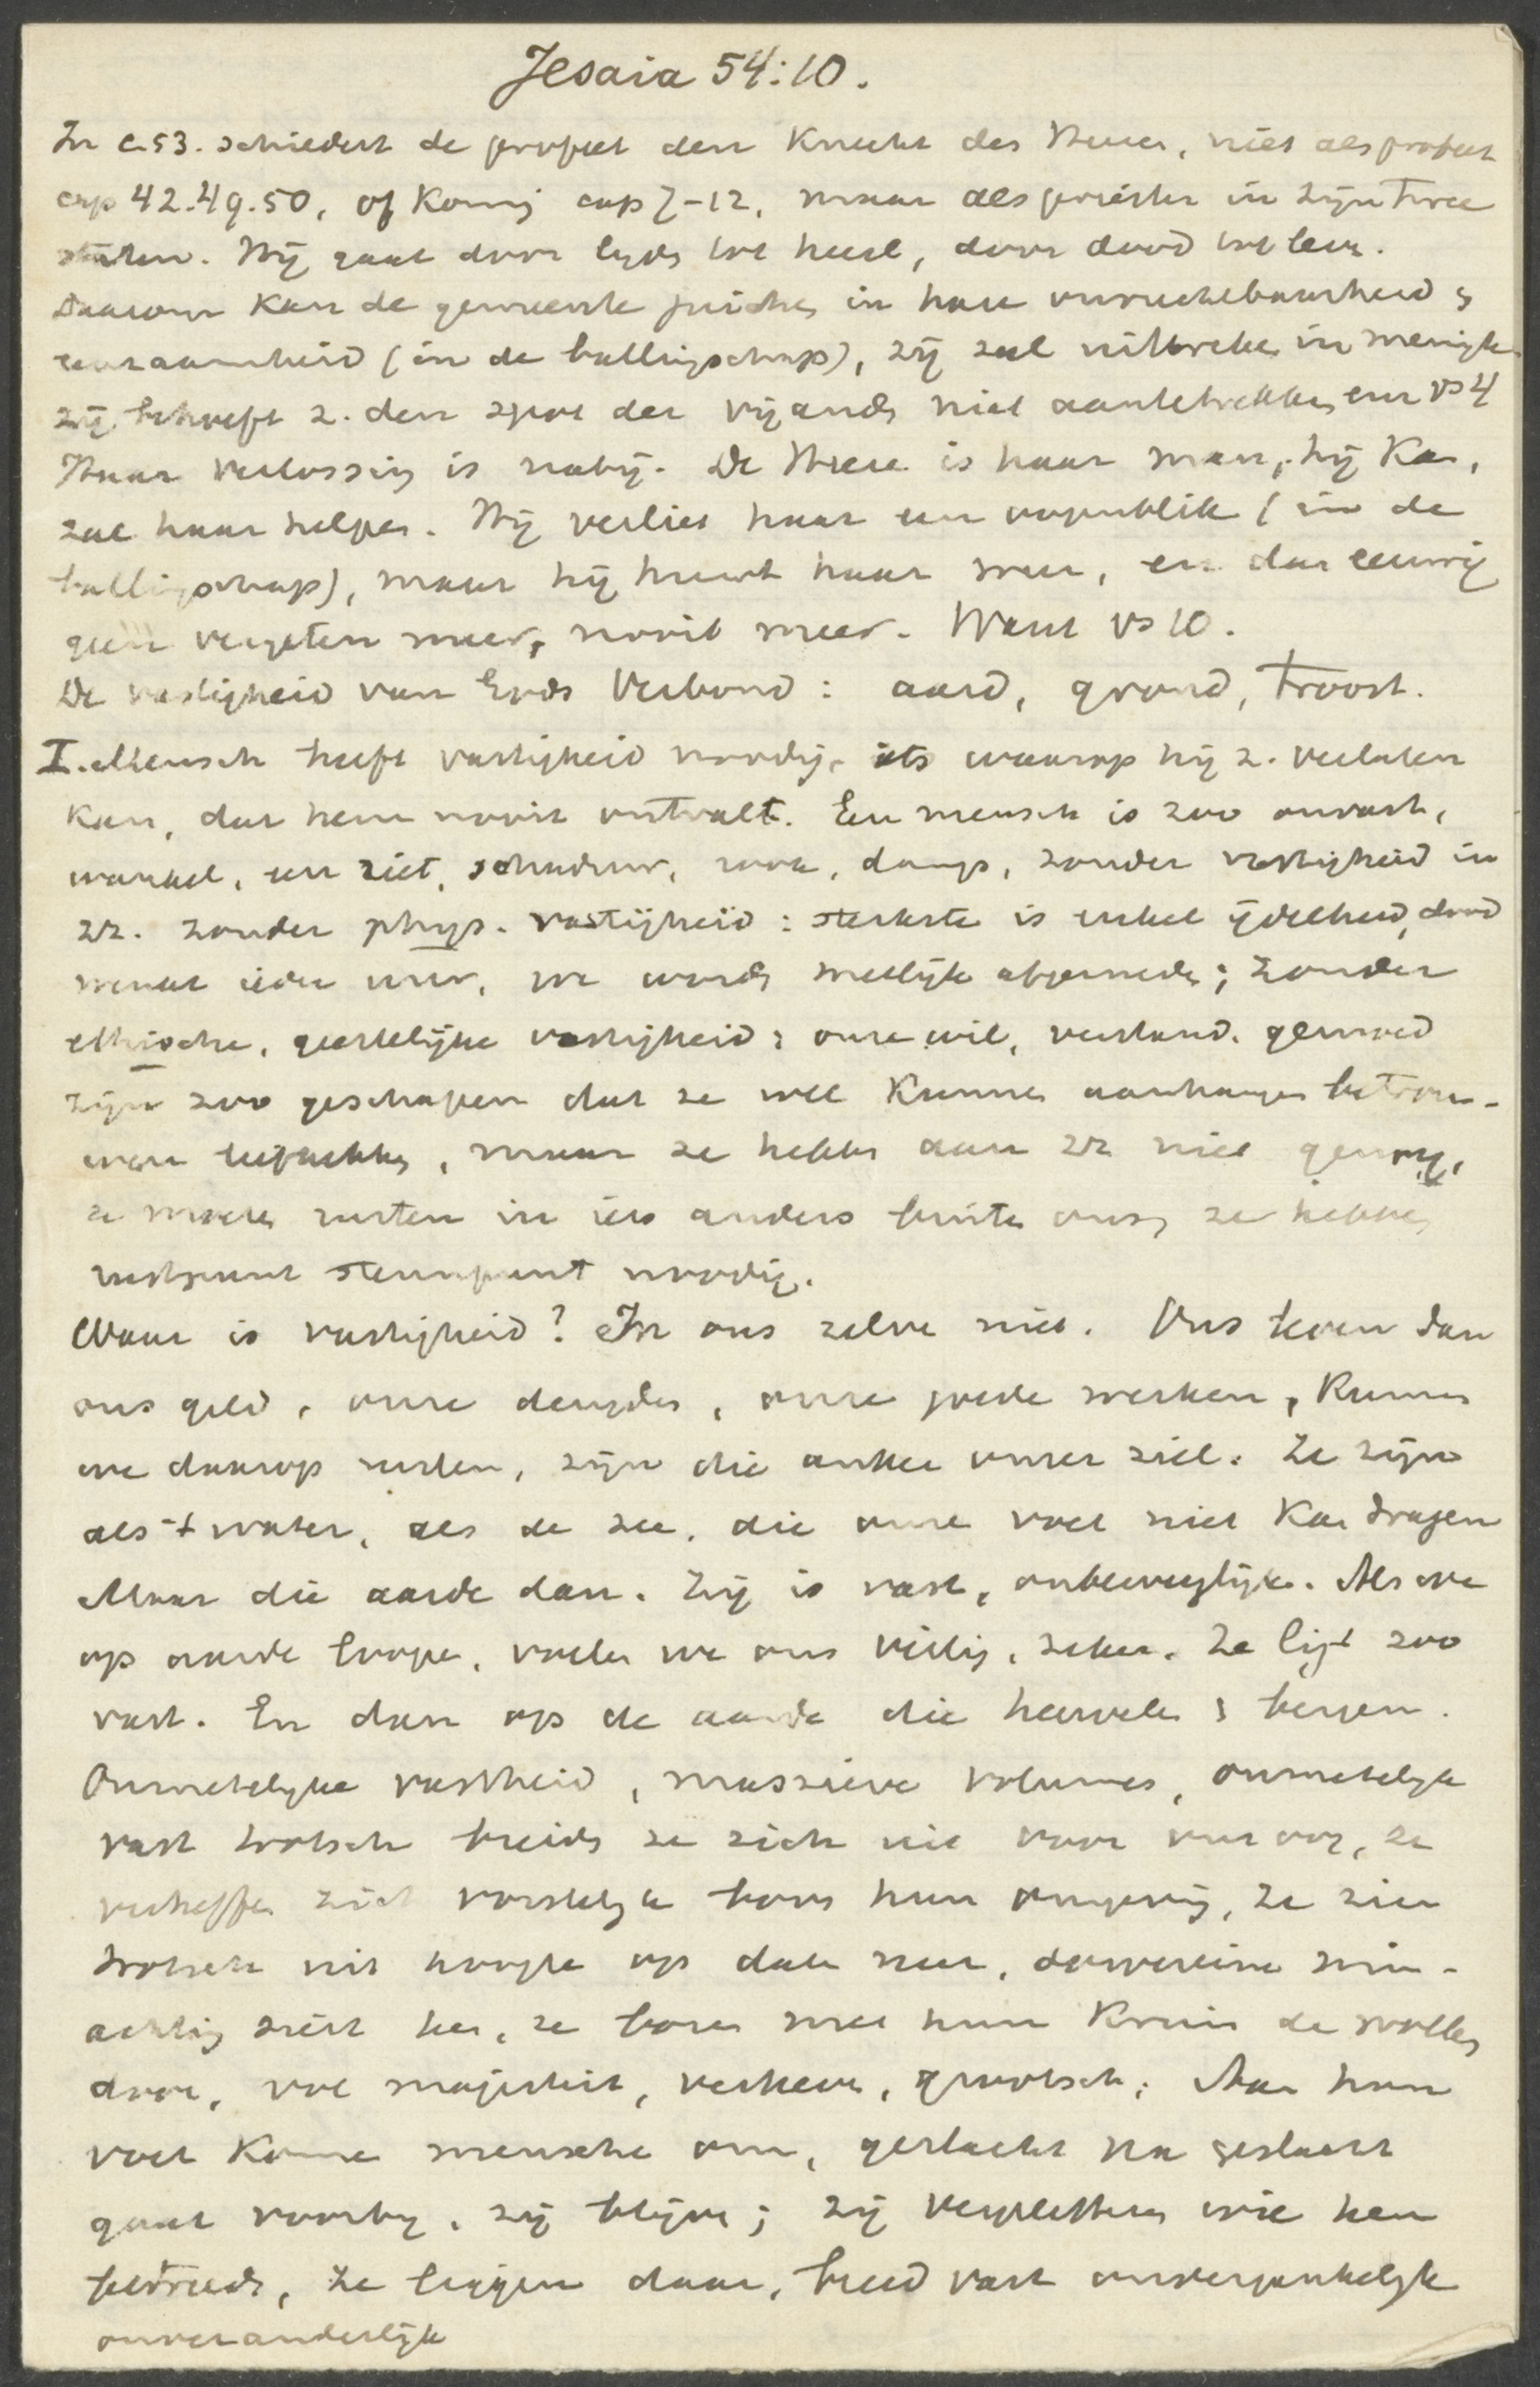 Jesaia 54:10.
In c. 53. schildert de profeet den Knecht des Heeren, niet als profeet
cap 42.49.50, of Koning cap 7-12, maar als priester in zijn twee
staten. Hij gaat door lijden tot heerl, door dood tot leven.
Daarom kan de gemeente juichen in hare onvruchtbaarheid &
eenzaamheid (in de ballingschap), zij zal uitbreken in menigte
zij behoeft z. den spot der vijanden niet aantetrekken vs 4
Haar verlossing is nabij. De Heere is haar man, hij kan,
zal haar helpen. Hij verliet haar een oogenblik (in de
ballingschap), maar hij huwt haar weer, en dan eeuwig
geen vergeten meer, nooit meer. Want vs 10.
De vastigheid van Gods Verbond: aard, grond, troost.
I. Mensch heeft vastigheid noodig, iets waarop hij z. verlaten
kan, dat hem nooit ontvalt. En mensch is zoo onvast,
wankel, een riet, schaduw, rook, damp, zonder vastigheid in
zz. zonder phys. vastigheid: sterkste is enkel ijdelheid, dood
wenkt ieder uur, we worden snellijk afgesneden; zonder
ethische, geestelijke vastigheid: onze wil, verstand, gemoed
zijn zoo geschapen dat ze wel kunnen aanhangen betrou-
wen, maar ze hebben aan zz niet genoeg,
ze moeten rusten in iets anders buiten ons, ze hebben
rustpunt steunpunt noodig.
Waar is vastigheid? In ons zelve niet. Ons leven dan
ons geld, onze deugden, onze goede werken, kunnen
we daarop rusten, zijn die anker onzer ziel. Ze zijn
als 't water, als de zee, die onze voet niet kan dragen
Maar die aarde dan. Zij is vast, onbewegelijk. Als we
op aarde loopen, voelen we ons veilig, zeker. Ze ligt zoo
vast. En dan op de aarde die heuvelen & bergen.
Onmetelijke vastheid, massieve volumes, onmetelijk
vast trotsch breiden ze zich uit voor ons oog, ze
verheffen zich vorstelijk boven hun omgeving, ze zien
trotsch uit hoogte op dalen neer, souvereine min-
achting ziet, ze boren met hun kruin de wolken
door, vol majesteit, verheven, grootsch; Aan hun
voet komen menschen om, geslacht na geslacht
gaat voorbij, zij blijven; zij verpletteren wie hen
betreedt, ze liggen daar, breed vast onvergankelijk
onveranderlijk